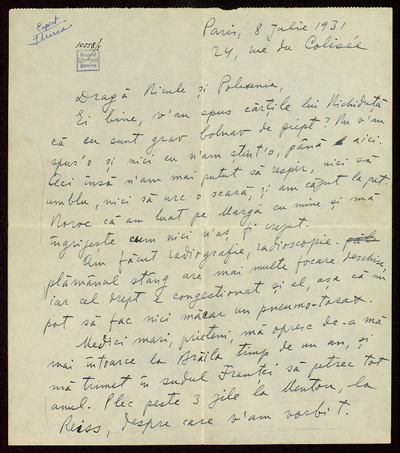 Paris, 8 Iulie 1931
24, rue du Colisée
10558/1
Muzeul
Dragă Nicule și Polixenia,
Ei bine, v'au spus cărțile lui Nichiduță
că eu sunt grav bolnav de piept? Nu v'au
spus'o și nici eu n'am știut'o, până aici.
Aci însă n'am mai putut să respir, nici să
umblu, nici să urc o scară, și am căzut la pat.
Noroc că am luat pe Marga cu mine și mă
îngrijește cum nici n'aș fi crezut.
Am făcut radiografie, radioscopie.
plămânul stâng are mai multe focare deschise,
iar cel drept e congestionat și el, așa că nu
pot să fac nici măcar un pneumo-torax.
Medici mari, prieteni, mă opresc de-a mă
mai întoarce la Brăila timp de un an, și
mă trimet în sudul Franței să petrec tot
anul. Plec peste 3 zile la Menton, la
Reiss, despre care v'am vorbit.